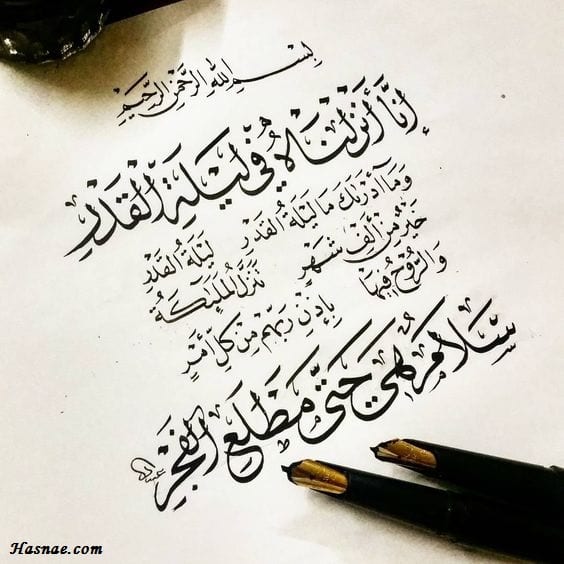 بِسْمِ اللهِ الرَّحْمٰنِ الرَّحِيْمِ
إِنَّا أَنزَلْنَاهُ فِي لَيْلَةِ الْقَدْرِ
وَمَا أَدْرَىكَ مَا لَيْلَةُ الْقَدْرِ لَيْلَةُ الْقَدْرِ
خَيْرٌ مِنْ أَلْفِ شَهْرٍ تَنَزَّلُ الْمَلَئِكَةُ
وَالرُّوْحُ فِيْهَا بِإِذْنِ رَبِّهِمْ مِنْ كُلِّ أَمْرٍ
سَلَامٌ هِيَ حَتَّى مَطْلَعِ الْفَجْرِ
Hasnae.com